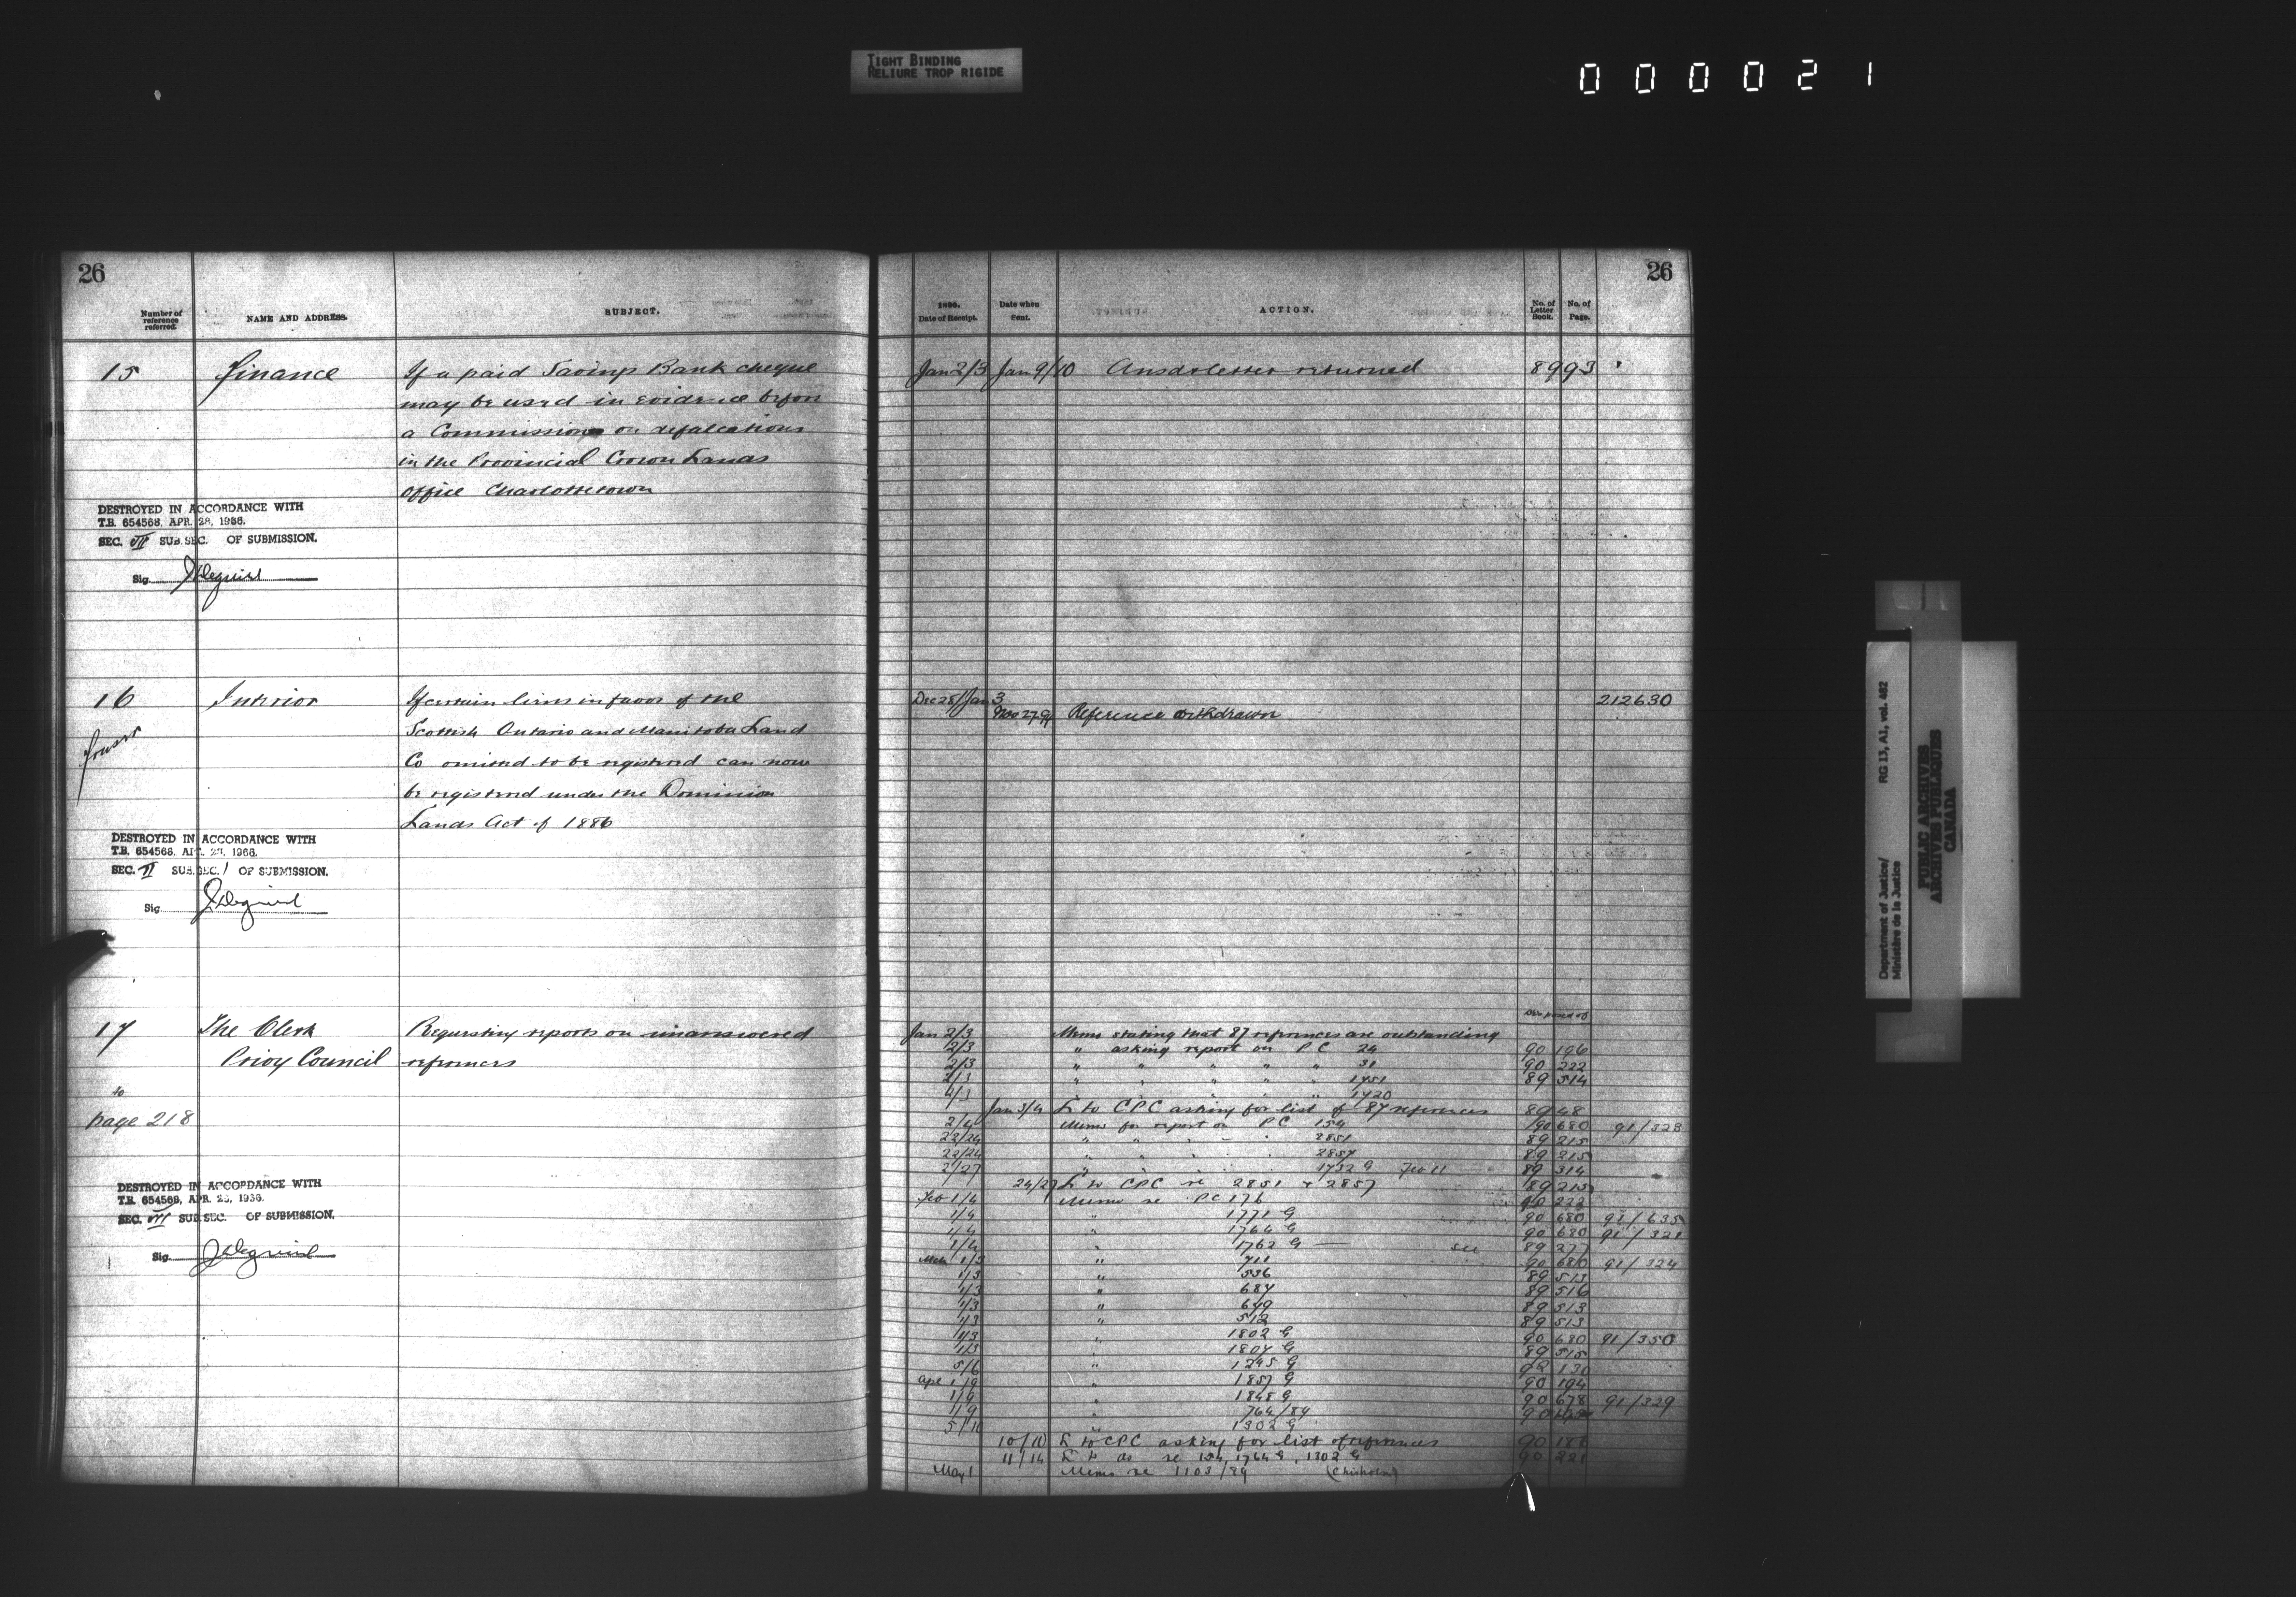 TIGHT BINDING
RELIURE TROP RIGIDE
000021
26
Number of reference referred.
NAME AND ADDRESS.
SUBJECT.
15 Finance If a paid Savings Bank cheque
may be used in evidence before
a Commission on defalcations
in the Provincial Crown Lands
Office Charlottetown
DESTROYED IN ACCORDANCE WITH
T.B. 654568, APR. 28, 1966.
SEC. VII SUB.SEC. OF SUBMISSION.
Sig.
16 Interior If certain liens in favor of the
Scottish Ontario and Manitoba Land
Co omitted to be registered can now
be registered under the Dominion
Lands Act of 1886
DESTROYED IN ACCORDANCE WITH
T.B. 654568, APR. 28, 1966.
SEC. VI SUB.SEC. 1 OF SUBMISSION.
Sig.
17 The Clerk Requesting reports on unanswered
Privy Council references
to
page 218
DESTROYED IN ACCORDANCE WITH
T.B. 654568, APR. 28, 1966.
SEC. VII SUB.SEC. OF SUBMISSION.
Sig.
26
1890.
Date of Receipt.
Date when Sent.
ACTION.
No. of Letter Book.
No. of Page.
Jan 2/3 Jan 9/10 Ansd letter returned 89 93
Dec 28/Jan 3 212630
Nov 27 91 Reference withdrawn
Disposed of
Jan 2/3 Memo stating that 87 references are outstanding
2/3 " asking report on PC 24 90 196
2/3 " " " " " 31 90 222
2/3 " " " " " 1751 89 514
2/3 " 1720
Jan 3/4 L to CPC asking for list of 87 references 89 48
2/4 Memo for report on PC 154 90 680 91/328
22/24 " " " 2851 89 215
22/24 " 2857 89 215
2/27 " 1732 G Feb 11 89 314
24/27 L to CPC re 2851 & 2857 89 215
Feb 1/4 Memo re PC 176 90 222
1/4 " 1771 G 90 680 91/635
1/4 " 1764 G 90 680 91/321
1/4 " 1762 G — see 89 277
Mch 1/3 " 711 90 680 91/324
1/3 " 536 89 513
1/3 " 687 89 516
1/3 " 649 89 513
1/3 " 512 89 513
1/3 " 1802 G 90 680 91/350
1/3 " 1807 G 89 515
5/6 " 1245 G 92 130
Apl 1/9 " 1857 G 90 194
1/9 " 1848 G 90 678 91/329
1/9 " 764/89 90
5/10 " 1302 G
10/10 L to CPC asking for list of references 90 186
11/14 L to do re 154, 1764 G, 1302 G 90 221
May 1 Memo re 1103/89 (Chisholm)
Department of Justice/
Ministère de la Justice
RG 13, A1, vol. 482
PUBLIC ARCHIVES
ARCHIVES PUBLIQUES
CANADA